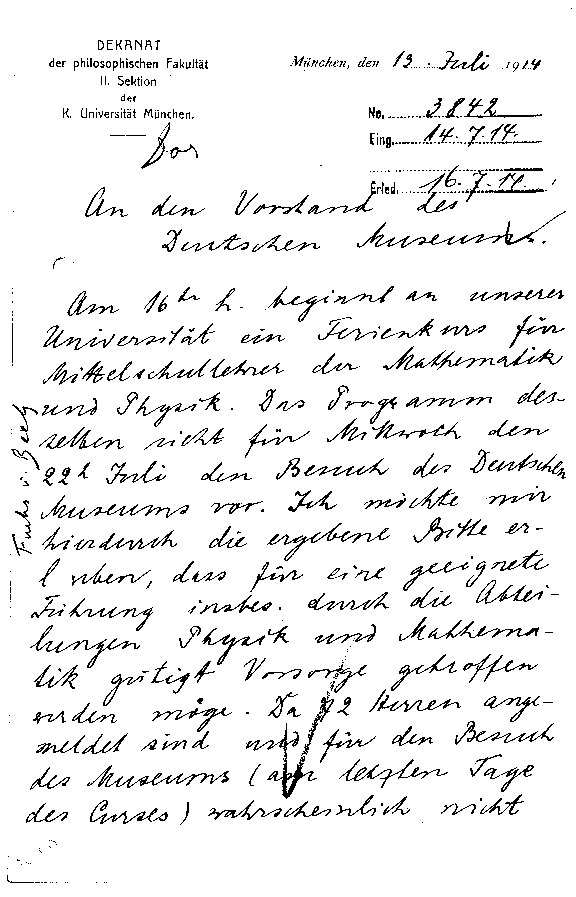 DEKANAT
der philosophischen Fakultät
II. Sektion
der
K. Universität München.
München, den 13. Juli 1914
No. 3842
Eing. 14.7.14.
Erled. 16.7.14.
An den Vorstand des
Deutschen Museums.
Am 16ten h. beginnt an unserer
Universität ein Ferienkurs für
Mittelschullehrer der Mathematik
und Physik. Das Programm des-
selben sieht für Mittwoch den
22ten Juli den Besuch des Deutschen
Museums vor. Ich möchte mir
hierdurch die ergebene Bitte er-
lauben, dass für eine geeignete
Führung insbes. durch die Abtei-
lungen Physik und Mathema-
tik gütigst Vorsorge getroffen
werden möge. Da 42 Herren ange-
meldet sind und für den Besuch
des Museums (am letzten Tage
des Curses) wahrscheinlich nicht
Fuchs u.